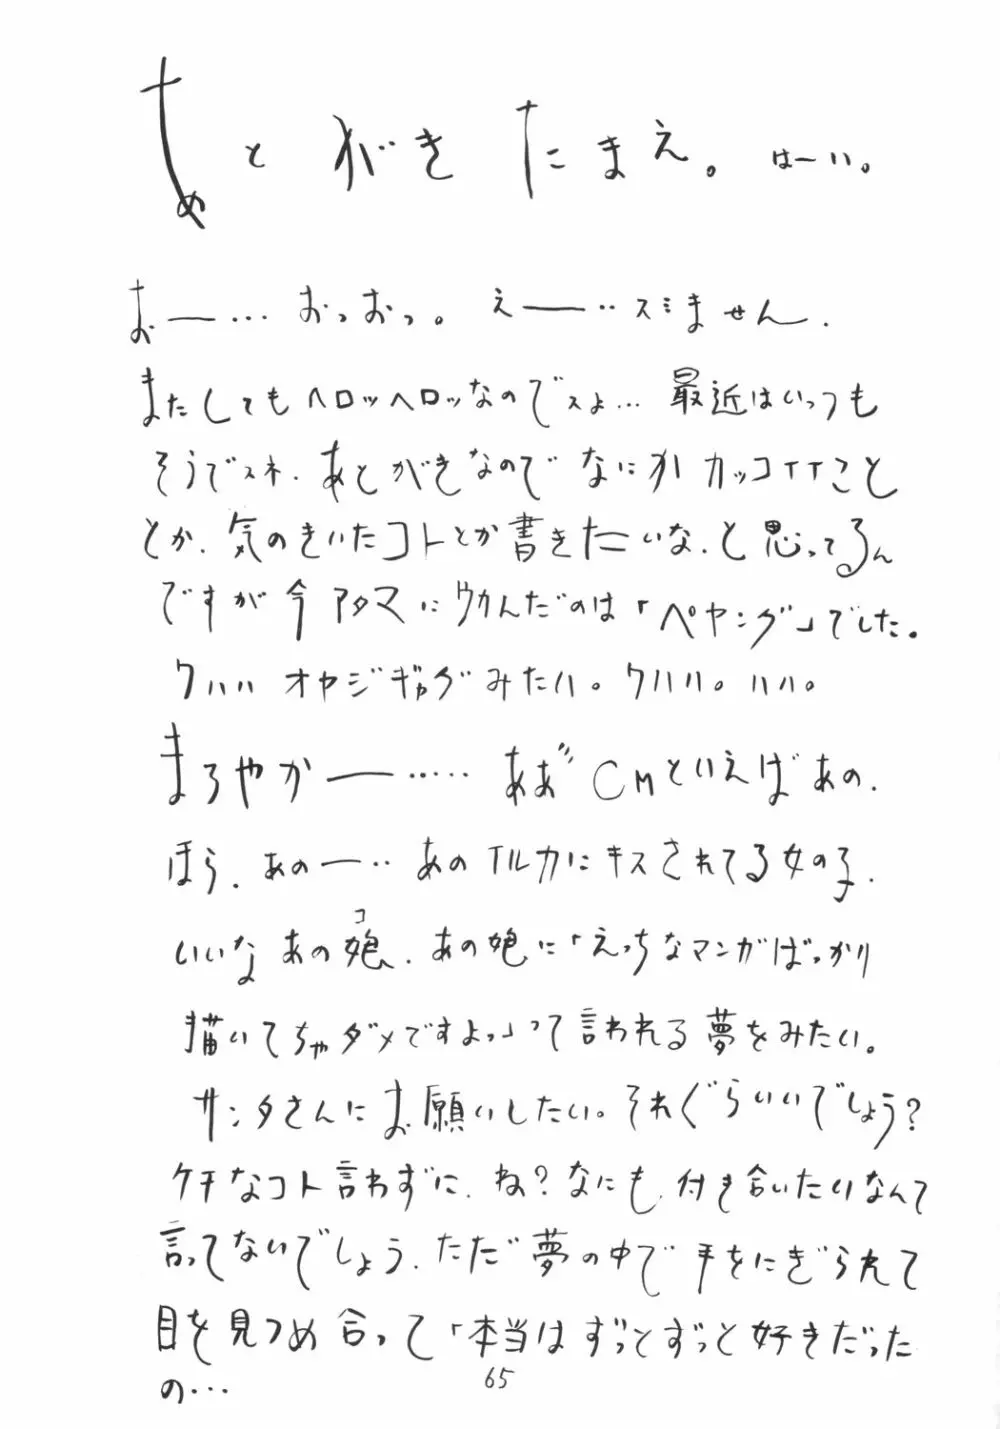 あとがきたまえ。はーい。
おー―… おっおっ。えー―‥スミません.
またしてもヘロッヘロッなのでスよ… 最近はいっつも
そうでスネ. あとがきなので なにか カッコイイこと
とか. 気のきいたコトとか書きたいな. と思ってるん
ですが今アタマにウカんだのは「ペヤング」でした。
クハハ オヤジギャグみたい。クハハ。ハハ。
まろやかー―…… ああ゛CMといえばあの.
ほら. あのー―‥ あのイルカにキスされてる女の子.
いいなあの娘コ. あの娘に「えっちなマンガばっかり
描いてちゃダメですよっ」って言われる夢をみたい。
サンタさんにお願いしたい。それぐらいいいでしょう?
ケチなコト言わずに. ね?なにも. 付き合いたいなんて
言ってないでしょう. ただ夢の中で手をにぎられて
目を見つめ合って「本当はずっとずっと好きだった
の…
65